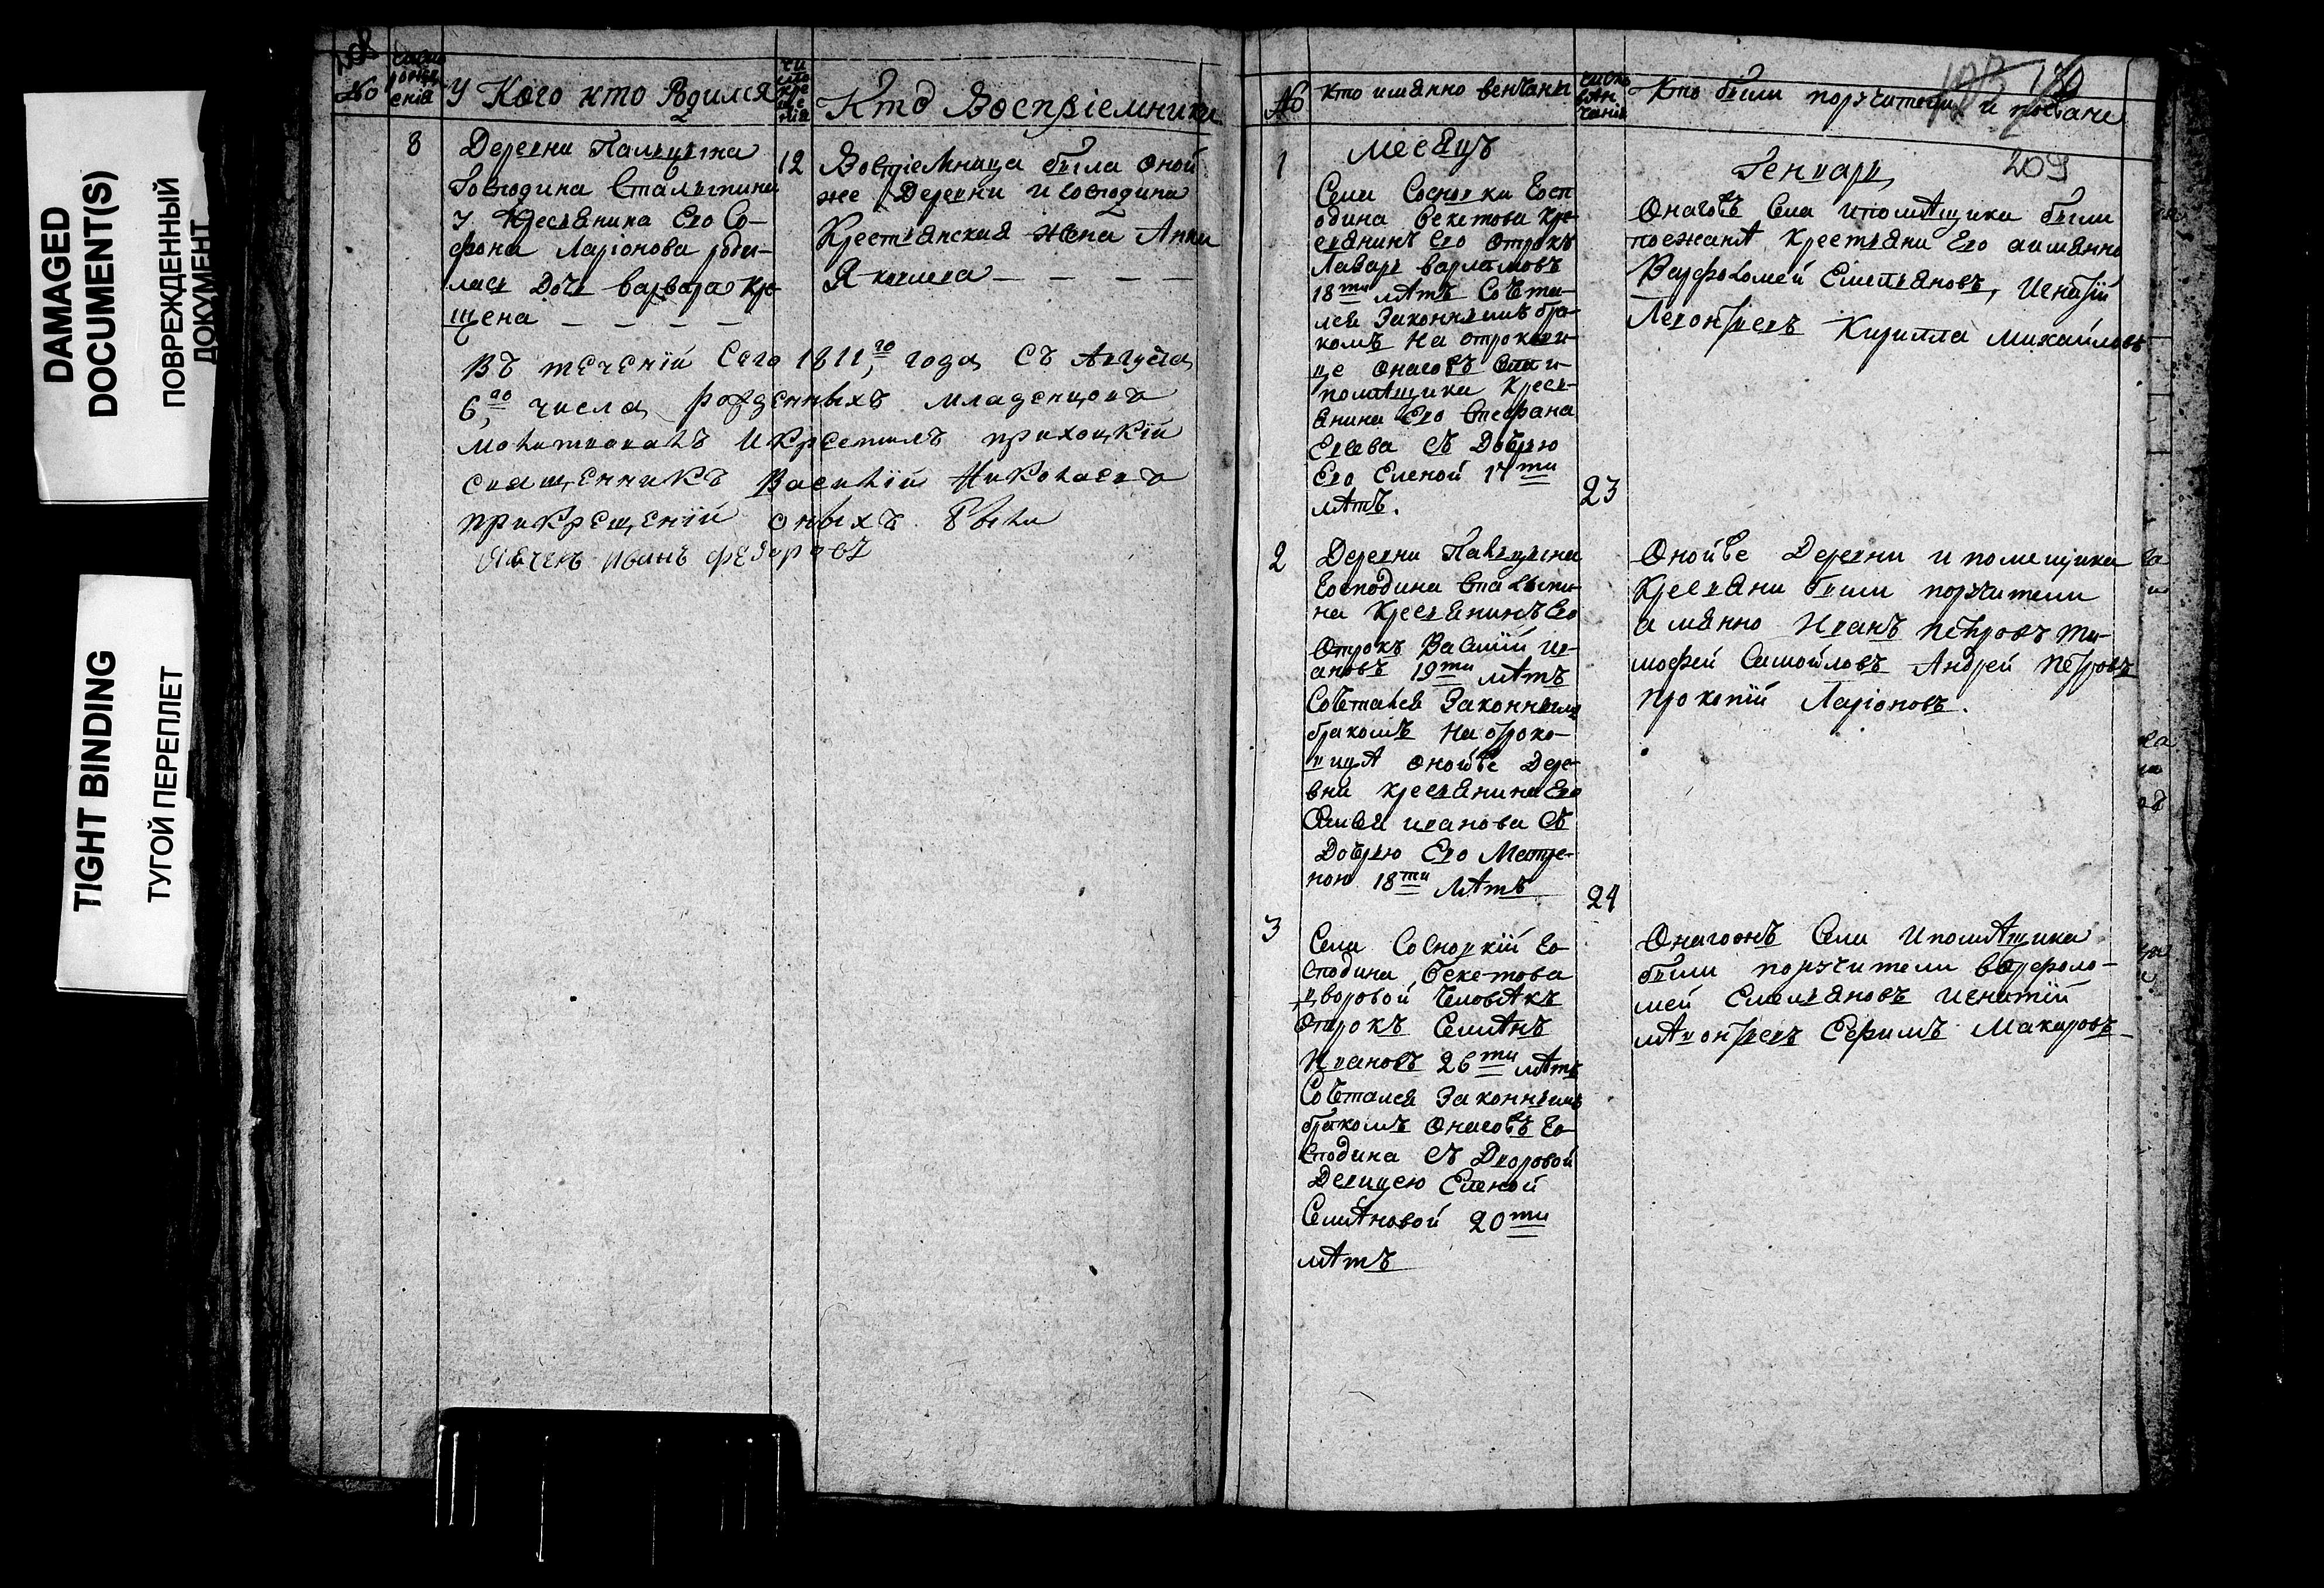 DAMAGED
DOCUMENT(S)
ПОВРЕЖДЕННЫЙ
ДОКУМЕНТ
TIGHT BINDING
ТУГОЙ ПЕРЕПЛЕТ
No
У Кого кто Родился
Кто Восприемники
8
Деревни
Господина Сталыпина
У Кресьянина Его Со-
фона Ларіонова роди-
лась Дочь варвара кре
щена
12
Воспріемница была оной
же Деревни и Господина
Крестьянская жена Анна
Въ теченіи Сего 1811,го года Съ Августа
6,го числа рожденныхъ младенцовъ
молитвовалъ И крестилъ приходкій
священникъ Василій Николаевъ
прикрещеній оныхъ были
Иванъ Федоровъ
180
209
No
Кто имянно венчаны
Кто были поручители и
1
месяцъ
Генварь
Села Сосновки Госп
одина бекетова кре
сьянинъ Его Отрокъ
Лаваръ варламовъ
18ти лѣтъ Сочета-
лся Законнымъ бра-
комъ На отрокови-
це онаговъ Села и
помѣщика Кресь-
янина Его Стефана
Съ Дочерью
Его Еленой 17ти
лѣтъ.
23
Онаговъ Села ипомѣщика были
поезжанѣ крестьяни Его аимянно
Варфоломей Емельяновъ, Игнатій
Кирилла Михайловъ
2
Деревни
Господина Сталыпи-
на Кресьянинъ Его
Отрокъ Василій Ив-
ановъ 19ти лѣтъ
Сочетался Законнымъ
бракомъ На отроко-
вицѣ оной Дере-
вни кресьянина Его
иванова Съ
Дочерью Его Матре-
ной 18ти лѣтъ
24
Оной Деревни и помещика
Кресьяни были поручители
а имянно Иванъ Петровъ ти-
мофей Самойловъ Андрей Петровъ
прокопій Ларіоновъ.
3
Села Сосновкій Го-
сподина бекетова
дворовой Человѣкъ
Отрокъ Семѣнъ
Ивановъ 26ти лѣтъ
Сочетался Законнымъ
бракомъ Онаговъ Го-
сподина Съ Дворовой
Девицею Еленой
Семѣновой 20ти
лѣтъ
Села Ипомѣщика
были поручители варфоло-
мей Емельяновъ игнатій
Макаровъ